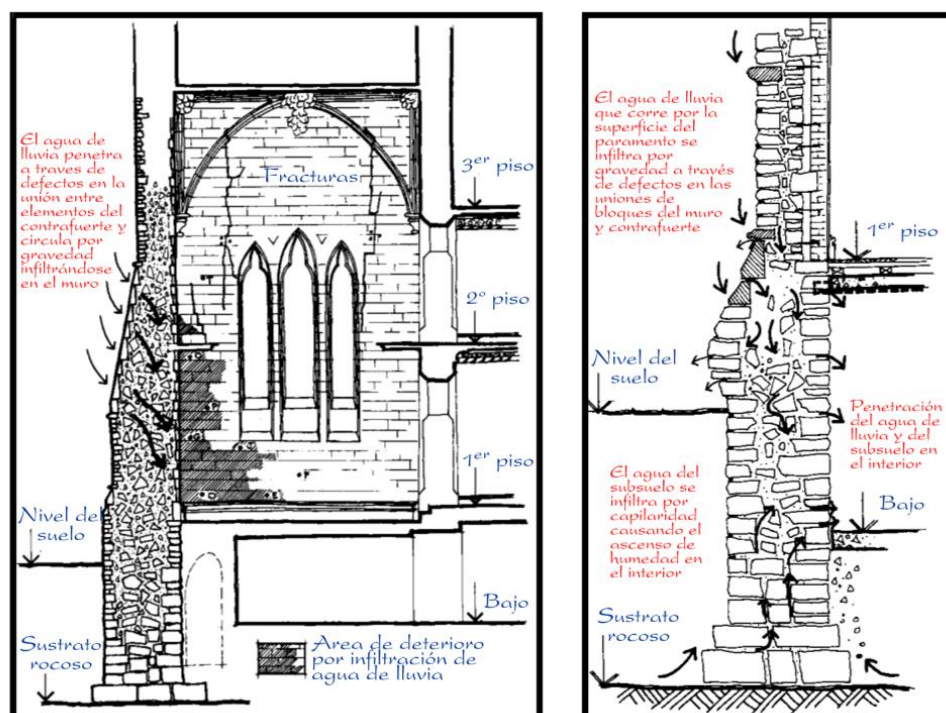 El agua de
lluvia penetra
a traves de
defectos en la
unión entre
elementos del
contrafuerte y
circula por
gravedad
infiltrándose
en el muro
Fracturas
3er piso
2º piso
1er piso
Nivel del
suelo
Bajo
Sustrato
rocoso
Area de deterioro
por infiltración de
agua de lluvia
El agua de lluvia
que corre por la
superficie del
paramento se
infiltra por
gravedad a través
de defectos en las
uniones de
bloques del muro
y contrafuerte
1er piso
Nivel del
suelo
Penetración
del agua de
lluvia y del
subsuelo en
el interior
El agua del
subsuelo se
infiltra por
capilaridad
causando el
ascenso de
humedad en
el interior
Bajo
Sustrato
rocoso